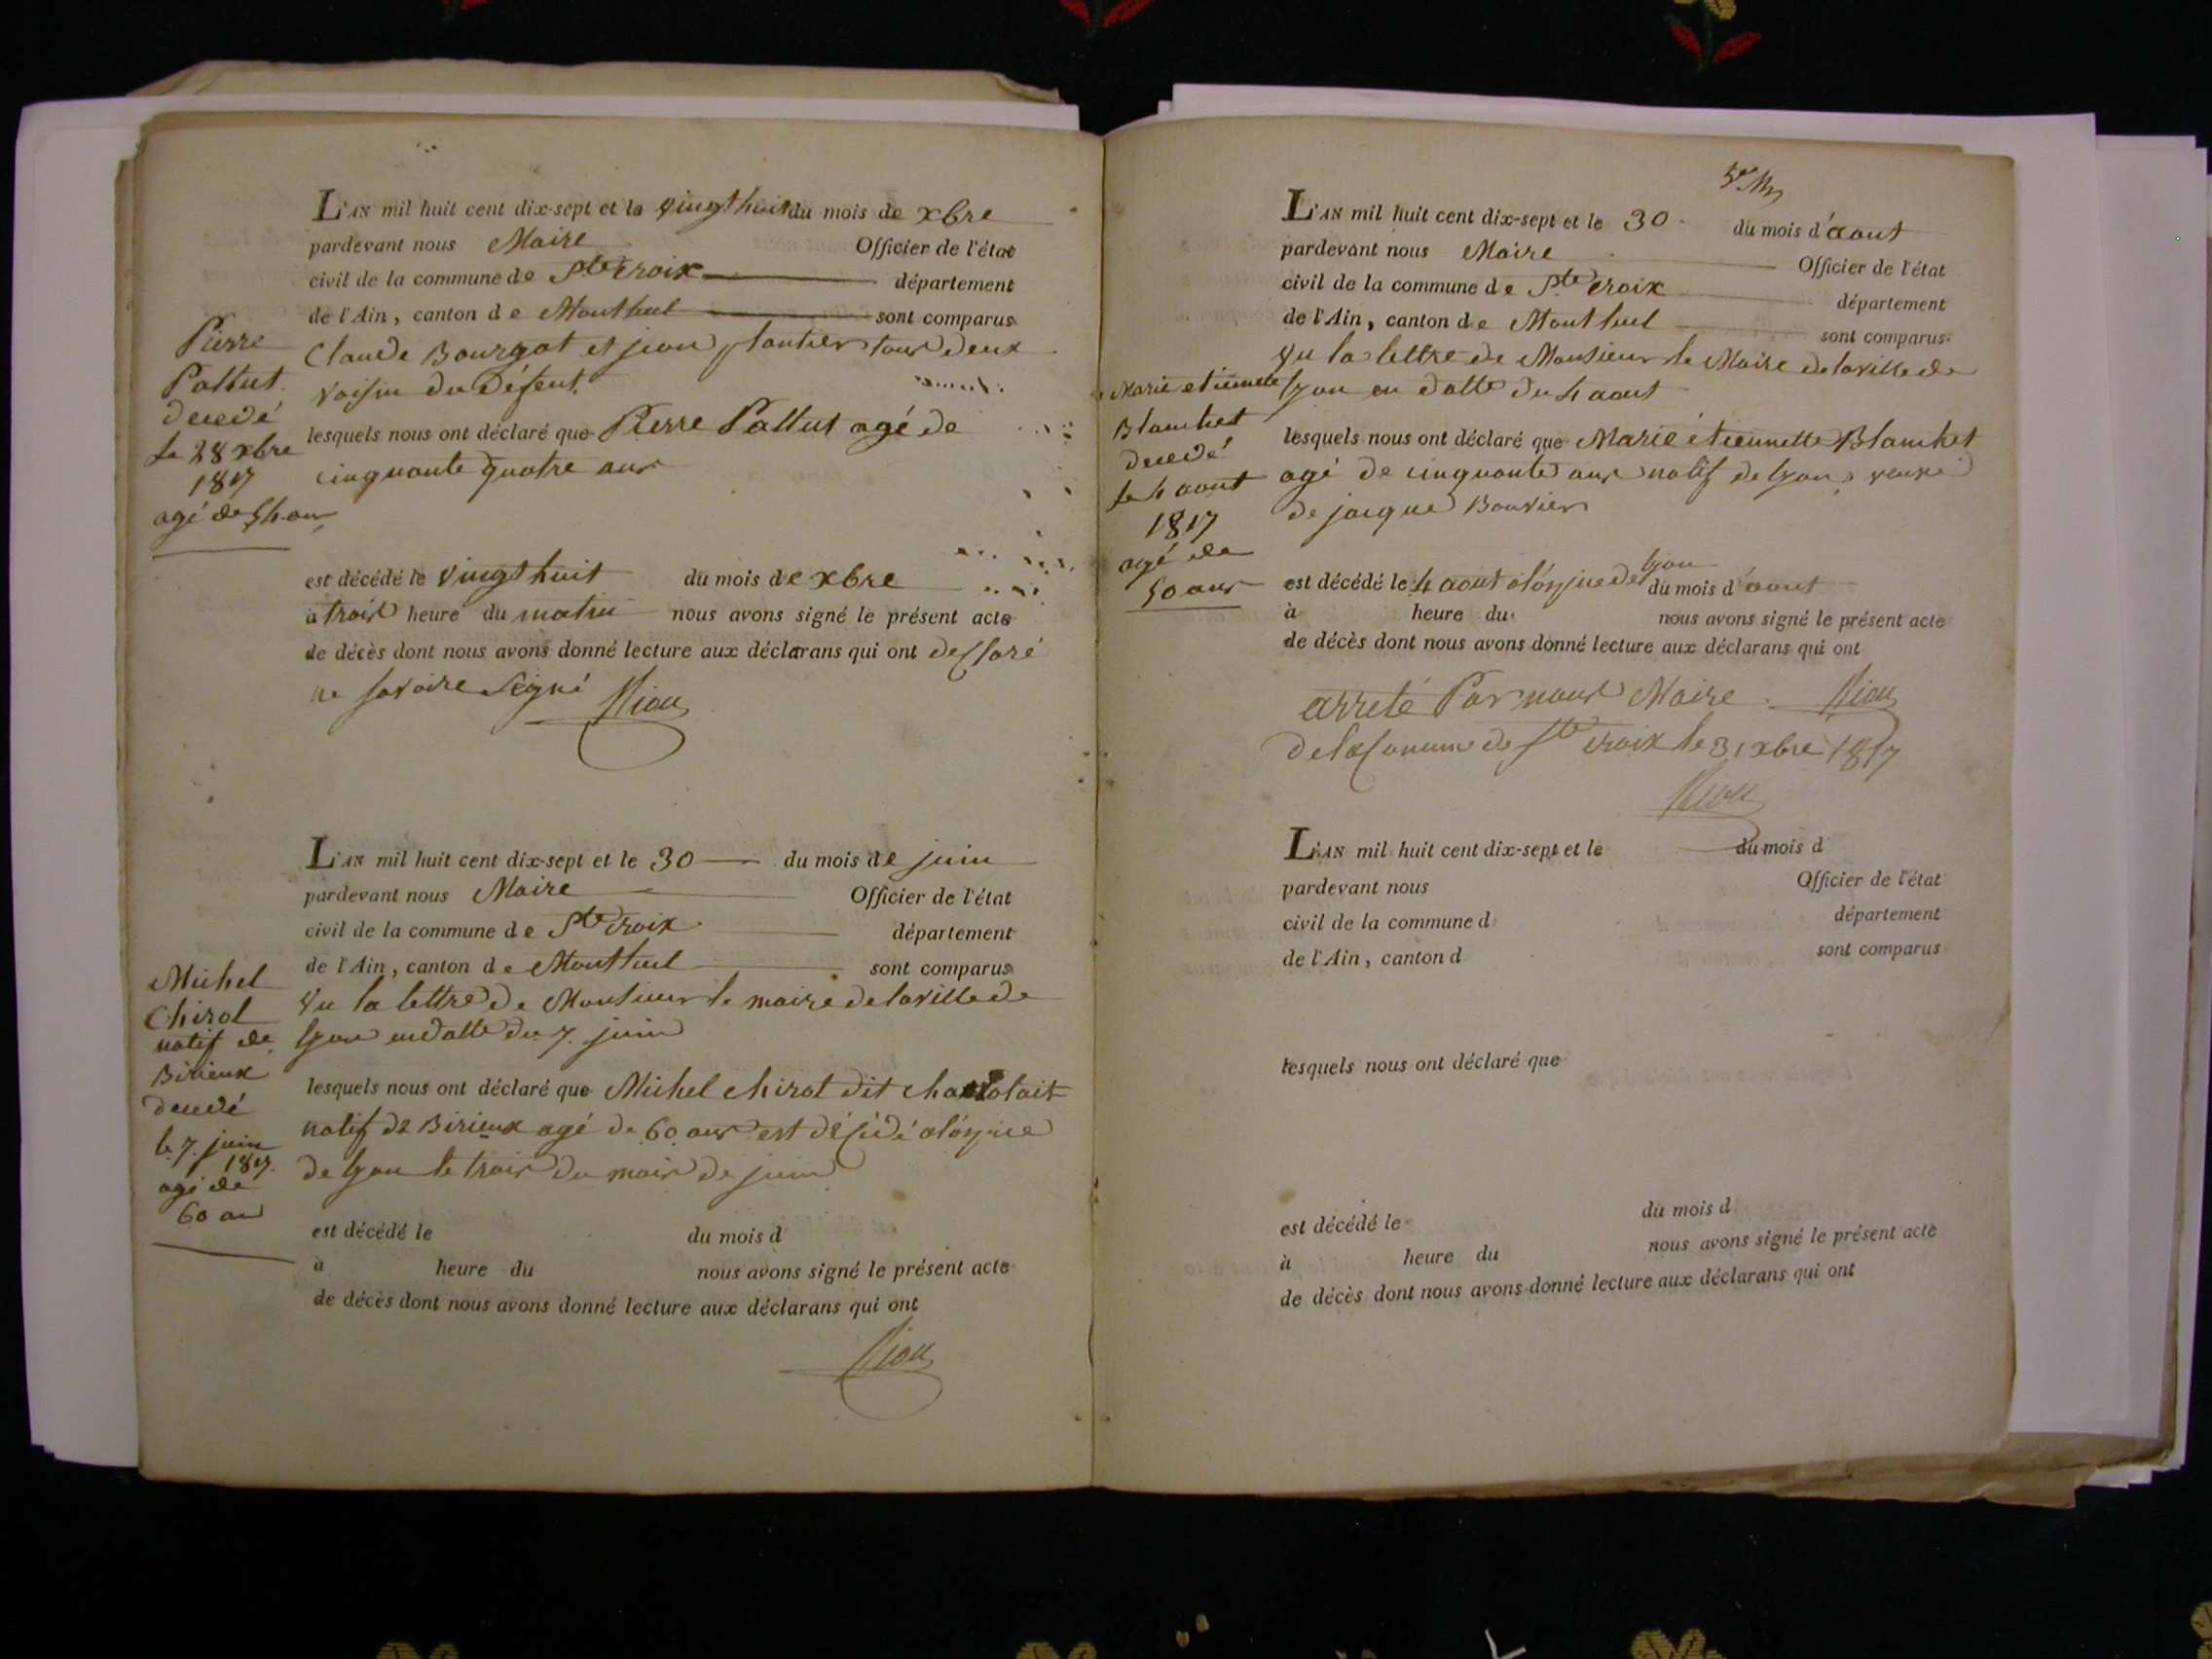 L'AN mil huit cent dix-sept et le vingt huit du mois de xbre
pardevant nous Maire Officier de l'état
civil de la commune de Ste Croix département
de l'Ain, canton de Montluel sont comparus
Claude Bourgot et jean plantier tous deux
voisin du défent.
lesquels nous ont déclaré que Pierre Pallut agé de
cinquante quatre ans
Pierre
Pallut
decedé
le 28 xbre
1817
agé de 54 ans
est décédé le vingt huit du mois de xbre
à trois heure du matin nous avons signé le présent acte
de décès dont nous avons donné lecture aux déclarans qui ont desclaré
ne savoire signé
L'AN mil huit cent dix-sept et le 30 du mois de juin
pardevant nous Maire Officier de l'état
civil de la commune de Ste Croix département
de l'Ain, canton de Montluel sont comparus
Vu la lettre de Monsieur le maire de la ville de
lyon en datte du 7. juin
lesquels nous ont déclaré que Michel chirot dit
natif de Birieux agé de 60 ans est décidé a lospice
de lyon le trois du mois de juin
Michel
Chirol
natif de
Birieux
decedé
le 7. juin
1817.
agé de
60 ans
est décédé le du mois d
à heure du nous avons signé le présent acte
de décès dont nous avons donné lecture aux déclarans qui ont
L'AN mil huit cent dix-sept et le 30 du mois d'aout
pardevant nous Maire Officier de l'état
civil de la commune de Ste Croix département
de l'Ain, canton de Montluel sont comparus
Vu la lettre de Monsieur le Maire de la ville de
lyon en datte du 4 aout
lesquels nous ont déclaré que Marie étiennette Blanchet
agé de cinquante ans natif de lyon, veuve
de jacque Bouvier
Marie etiennette
Blanchet
decedé
le 4 aout
1817
agé de
50 ans
est décédé le 4 aout a lospice de lyon du mois d'aout
à heure du nous avons signé le présent acte
de décès dont nous avons donné lecture aux déclarans qui ont
arreté Par nous Maire
de la Comune de Ste Croix le 31 xbre 1817
L'AN mil huit cent dix-sept et le du mois d
pardevant nous Officier de l'état
civil de la commune d département
de l'Ain, canton d sont comparus
lesquels nous ont déclaré que
est décédé le du mois d
à heure du nous avons signé le présent acte
de décès dont nous avons donné lecture aux déclarans qui ont